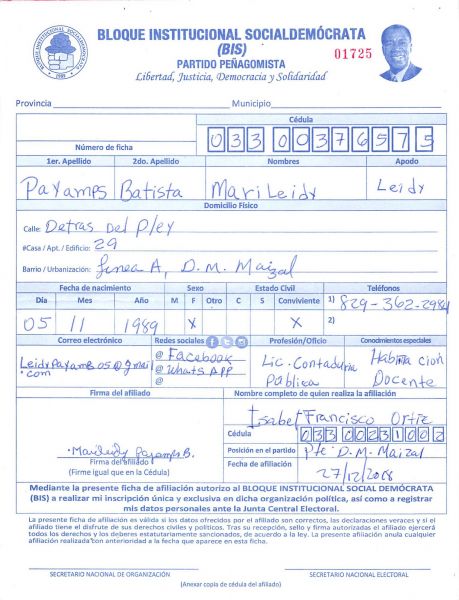 BLOQUE INSTITUCIONAL SOCIALDEMÓCRATA
(BIS)
PARTIDO PEÑAGOMISTA
Libertad, Justicia, Democracia y Solidaridad
01725
Provincia Municipio
Cédula
Número de ficha 033 0037657 5
1er. Apellido 2do. Apellido Nombres Apodo
Payamps Batista MariLeidy Leidy
Domicilio Físico
Calle: Detras Del Pley
#Casa / Apt. / Edificio: 29
Barrio / Urbanización: Linea A, D. M. Maizal
Fecha de nacimiento Sexo Estado Civil Teléfonos
Día Mes Año M F Otro C S Conviviente 1) 829-362-2984
05 11 1989 X X 2)
Correo electrónico Redes sociales Profesión/Oficio Conocimientos especiales
LeidyPayamps05@gmail
.com
@ Facebook
@ WhatsAPP
@
Lic. Contaduria
Pública
Habilitación
Docente
Firma del afiliado Nombre completo de quien realiza la afiliación
Isabel Francisco Ortiz
Cédula 033 0023100 2
Marileidy Payamps B.
Firma del afiliado
(Firme igual que en la Cédula)
Posición en el partido Pte. D. M. Maizal
Fecha de afiliación 27/12/2018
Mediante la presente ficha de afiliación autorizo al BLOQUE INSTITUCIONAL SOCIAL DEMÓCRATA
(BIS) a realizar mi inscripción única y exclusiva en dicha organización política, así como a registrar
mis datos personales ante la Junta Central Electoral.
La presente ficha de afiliación es válida si los datos ofrecidos por el afiliado son correctos, las declaraciones veraces y si el
afiliado tiene el disfrute de sus derechos civiles y políticos. Tras su recepción, sello y firma autorizadas el afiliado ejercerá
todos los derechos y los deberes estatutariamente sancionados, de acuerdo a la ley. La presente afiliación anula cualquier
afiliación realizada con anterioridad a la fecha que aparece en esta ficha.
SECRETARIO NACIONAL DE ORGANIZACIÓN SECRETARIO NACIONAL ELECTORAL
(Anexar copia de cédula del afiliado)